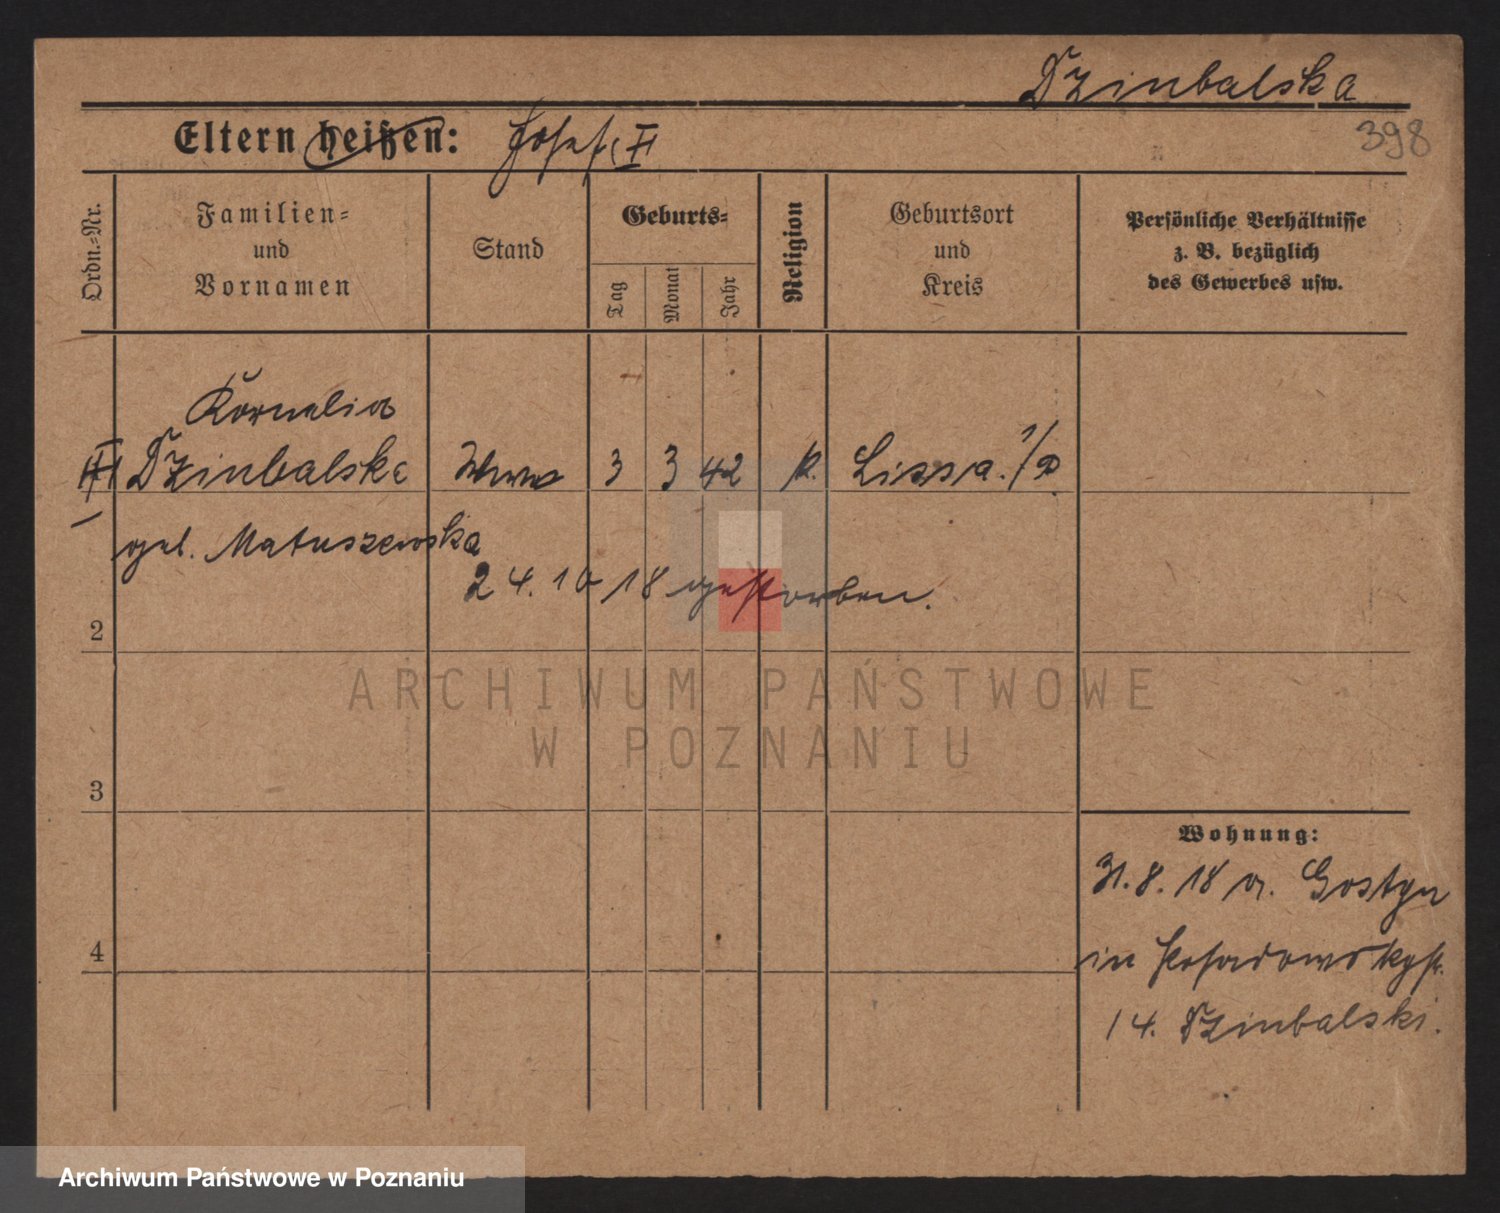 Dzinbalska
Eltern heißen: Josef II
398
Ordn.=Nr.
Familien=
und
Vornamen
Stand
Geburts=
Tag
Monat
Jahr
Religion
Geburtsort
und
Kreis
Persönliche Verhältnisse
z. B. bezüglich
des Gewerbes usw.
Kornelia
Dzinbalska Wwe 3 3 42 k. Lissa i/P.
geb. Matuszewska
24.10 18 gestorben.
2
3
4
Wohnung:
31.8.18 n. Gostyn
in Posadowskystr.
14. Dzinbalski.
ARCHIWUM PAŃSTWOWE
W POZNANIU
Archiwum Państwowe w Poznaniu